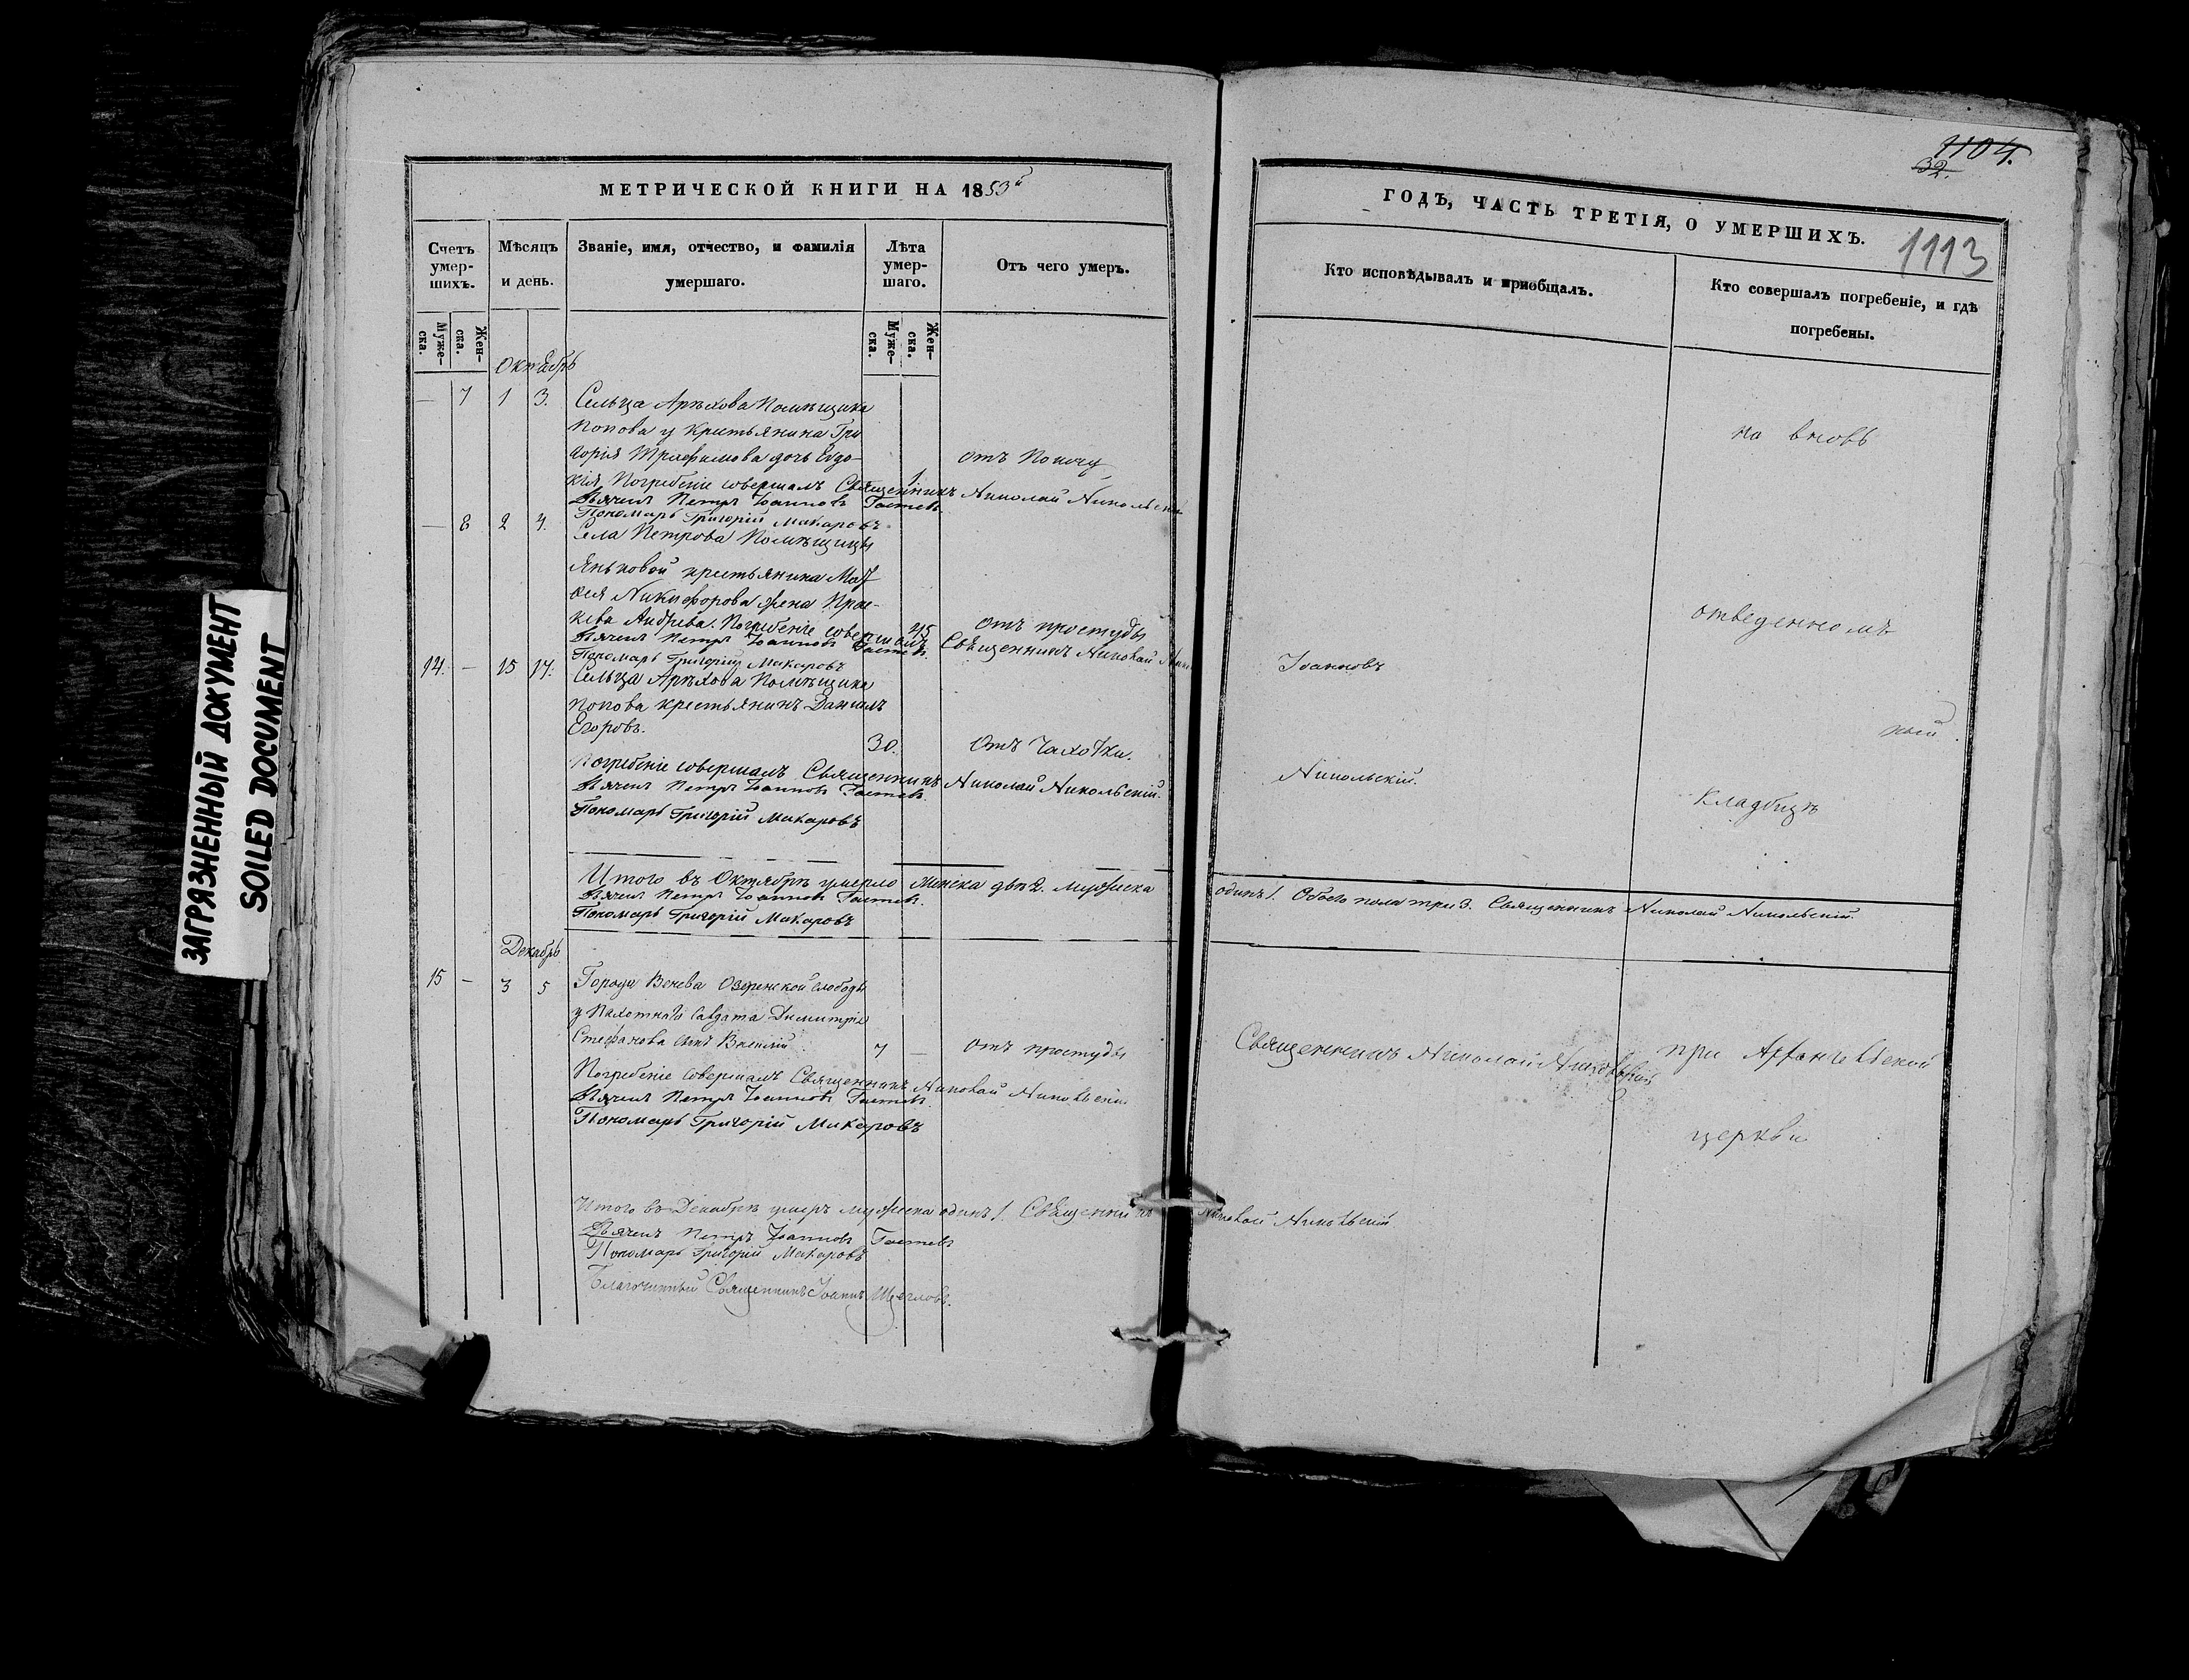 1104.
32.
МЕТРИЧЕСКОЙ КНИГИ НА 1853й
ГОДЪ, ЧАСТЬ ТРЕТІЯ, О УМЕРШИХЪ.
1113
Счетъ умер-шихъ.
Мѣсяцъ и день.
Званіе, имя, отчество, и фамилія
умершаго.
Лѣта умер-шаго.
Отъ чего умеръ.
Кто исповѣдывалъ и пріобщалъ.
Кто совершалъ погребеніе, и гдѣ
погребены.
Муже-ска.
Жен-ска.
Муже-ска.
Жен-ска.
Октябрь
— 7 1 3. Сельца Арѣхова Помѣщика
Попова у Крестьянина Гри
горія Трофимова дочь Евдо-
отъ Поносу
на вновь
кія Погребеніе совершалъ Священникъ Николай Никольскій
1
Дьячекъ Петръ Іоанновъ
Пономарь Григорій Макаровъ
— 8 2 4. Села Петрова Помѣщицы
Яньковой крестьянина
Никифорова жена Прас-
кева Андрѣева. Погребеніе совершалъ
45
отъ простуды
отведенномъ
Священникъ Николай
Дьячекъ Петръ Іоанновъ
Пономарь Григорій Макаровъ
Іоанновъ
14. — 15 17. Сельца Арѣхова Помѣщика
Попова крестьянинъ Даніилъ
Егоровъ.
30.
Отъ Чахотки.
Погребеніе совершалъ Священникъ Николай Никольскій.
Никольскій.
Дьячекъ Петръ Іоанновъ
кладбищѣ
Пономарь Григорій Макаровъ
Итого въ Октябрѣ умерло женска двѣ 2. мужеска одинъ 1. Обоего пола три 3. Священникъ Николай Никольскій.
Дьячекъ Петръ Іоанновъ
Пономарь Григорій Макаровъ
Декабрь
15 — 3 5 Города Венева Озеренской слободы
у Пахотнаго Салдата Димитрія
Стефанова сынъ Василій
7 —
отъ простуды
Священникъ Николай Никольскій
при
Погребеніе совершалъ Священникъ Николай Никольскій
Дьячекъ Петръ Іоанновъ
Пономарь Григорій Макаровъ
церкви
Итого въ Декабрѣ умеръ мужеска одинъ 1. Священникъ Николай Никольскій
Дьячекъ Петръ Іоанновъ
Пономарь Григорій Макаровъ
Благочинный Священникъ Іоаннъ Щегловъ.
ЗАГРЯЗНЕННЫЙ ДОКУМЕНТ
SOILED DOCUMENT